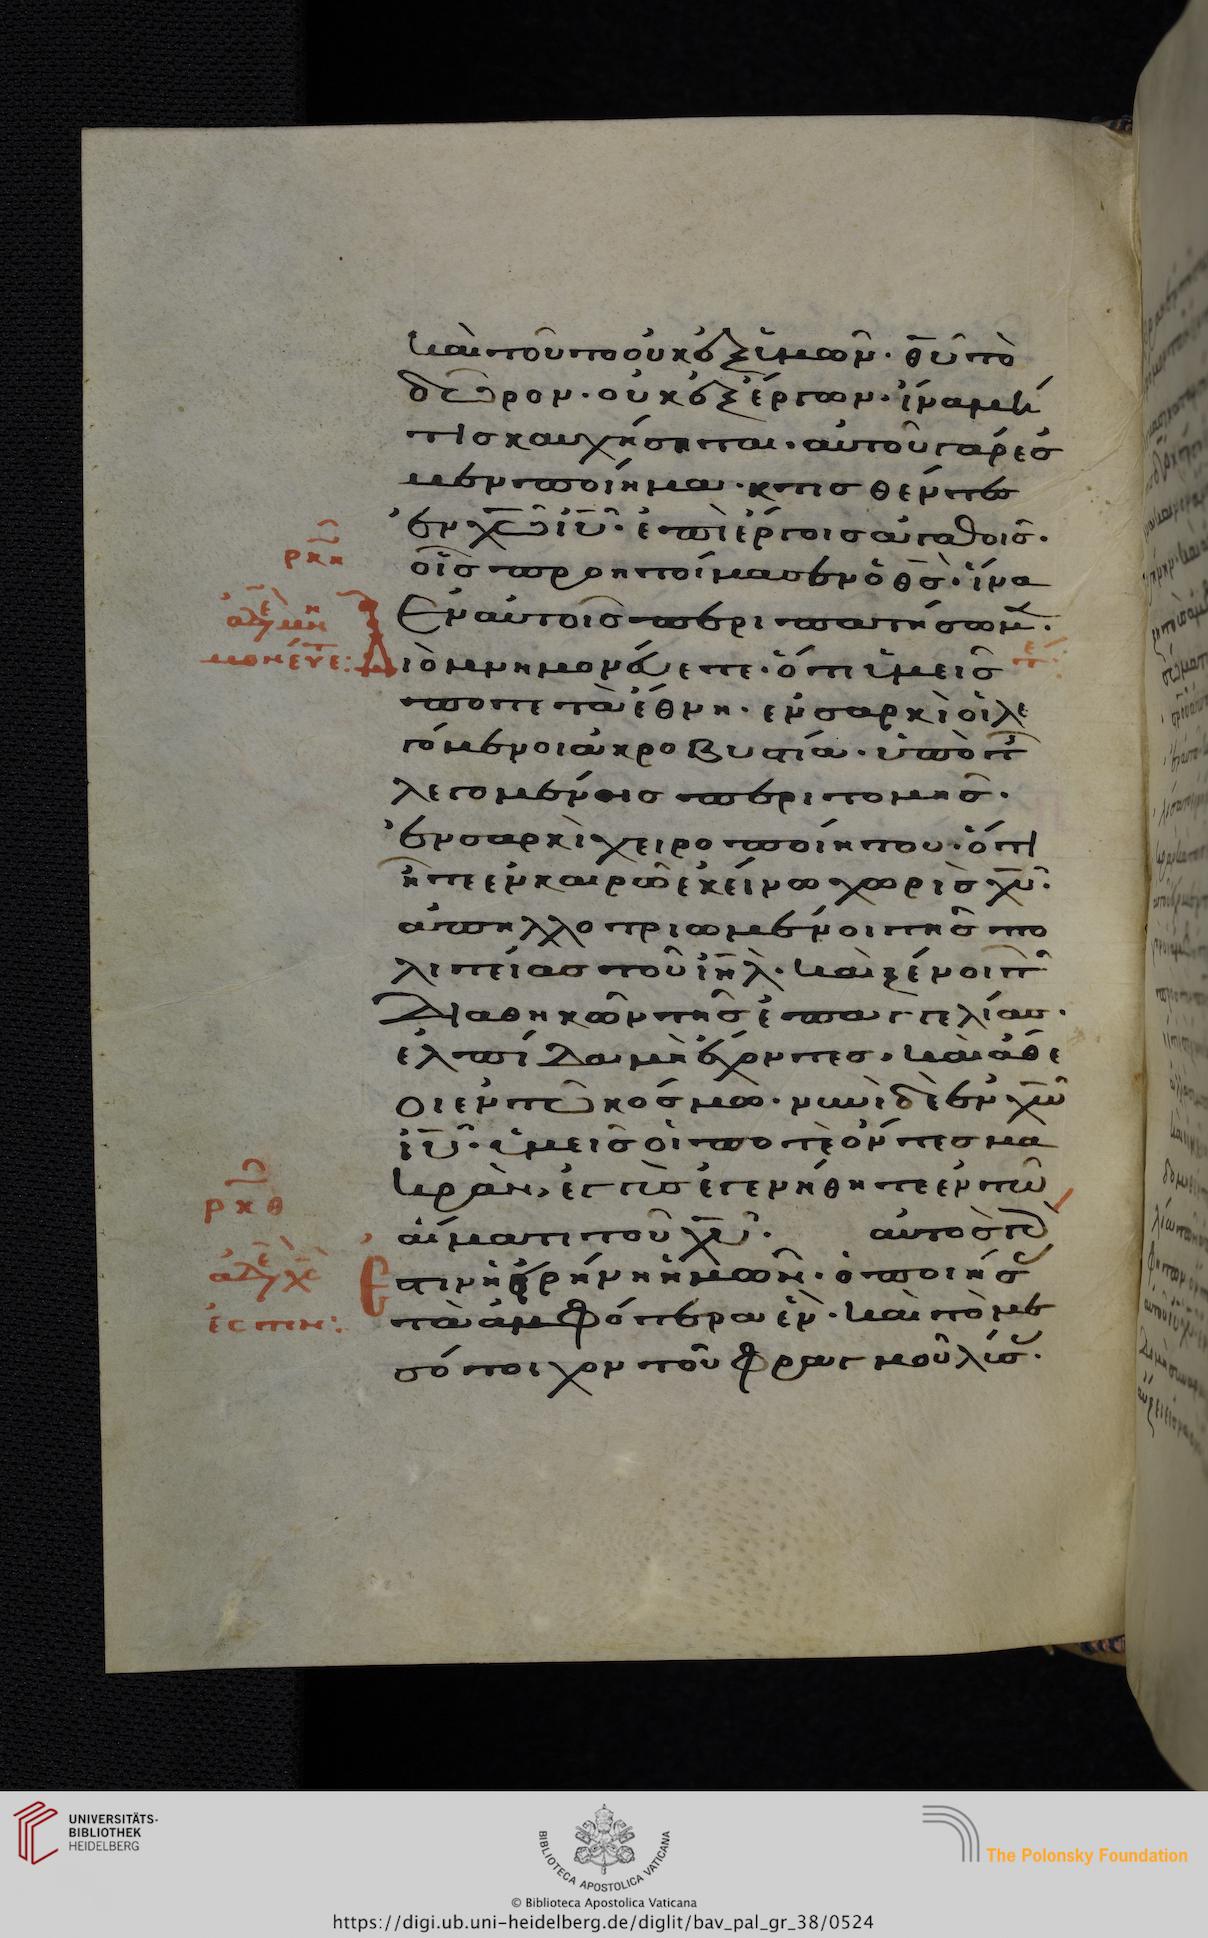 καὶ τοῦτο οὐκ ἐξ ὑμῶν· θ̅υ̅ τὸ
δῶρον· οὐκ ἐξ ἔργων· ἵνα μή
τις καυχήσηται· αὐτοῦ γάρ ἐσ
μεν ποίημα· κτισθέντες
ἐν χ̅ω̅ ι̅υ̅· ἐπὶ ἔργοις ἀγαθοῖς·
οἷς προητοίμασεν ὁ θ̅ς̅· ἵνα
ρκη
Εν αὐτοῖς περιπατήσωμ̅·
μνη
μονεύετε:
Διὸ μνημονεύετε· ὅτι ὑμεῖς
ποτὲ τὰ ἔθνη· ἐν σαρκὶ οἱ λε
γόμενοι ἀκροβυστία· ὑπὸ τ̅
λεγομένης περιτομῆς·
ἐν σαρκὶ χειροποιήτου· ὅτι
ἦτε ἐν καιρῶ ἐκείνω χωρὶς χ̅υ̅·
ἀπηλλοτριωμένοι τῆς πο
λιτείας τοῦ ι̅η̅λ̅· καὶ ξένοι τ̅
Διαθηκῶν τῆς ἐπαγγελίας·
ἐλπίδα μὴ ἔχοντες· καὶ ἄθε
οι ἐν τῶ κόσμω· νυνὶ δὲ ἐν χ̅ω̅
ι̅υ̅· ὑμεῖς οἵ ποτὲ ὄντες μα
κρὰν, ἐγγὺς ἐγενήθητε ἐν τῶ
ρκθ
αἵματι τοῦ χ̅υ̅· αὐτὸς γὰρ
Εστιν ἡ εἰρήνη ἡμῶν· ὁ ποιήσ
ἐστιν:
τὰ ἀμφότερα ἕν· καὶ τὸ με
σότοιχον τοῦ φραγμοῦ λύσ·
UNIVERSITÄTS-
BIBLIOTHEK
HEIDELBERG
BIBLIOTECA APOSTOLICA VATICANA
The Polonsky Foundation
© Biblioteca Apostolica Vaticana
https://digi.ub.uni-heidelberg.de/diglit/bav_pal_gr_38/0524